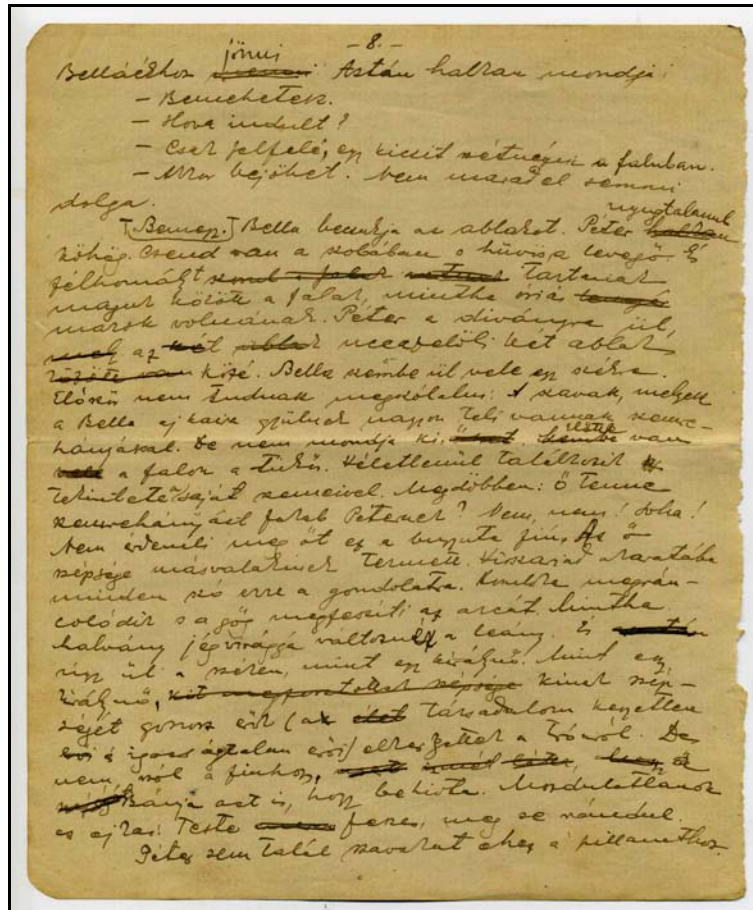 -8.-
Belláékhoz jönni Aztán halkan mondja:
- Bemehetek.
- Hova indult?
- Csak felfelé, egy kicsit sétálni a faluban.
- Akkor bejöhet. Nem marad el semmi
dolga.
Bemegy. Bella becsukja az ablakot. Péter nyugtalanul
köhög. Csend van a szobában s hűvös a levegő. És
félhomályt tartanak
maguk között a falak, mintha óriás
markok volnának. Péter a díványra ül,
az uccafelőli két ablak
közé. Bella szembe ül vele egy székre.
Először nem tudnak megszólalni. A szavak, melyek
a Bella ajkaira gyűlnek nagyon teli vannak szemre-
hányással. De nem mondja ki. van
a falon a tükör. Véletlenül találkozik
tekintete saját szemeivel. Megdöbben: Ő tenne
szemrehányást Péternek? Nem, nem! Soha!
Nem érdemli meg őt ez a buguta fiú. Az ő
szépsége másvalakinek termett.
minden szó erre a gondolatra. megrán-
colódik s a gőg megfeszíti az arcát. Mintha
halvány jégvirággá változnék a leány. És
úgy ül a széken, mint egy királynő. Mint egy
királynő, kit megfosztottak szépsége kinek szép-
ségét gonosz erők (a társadalom kegyetlen
s igazságtalan erői) elkergettek a trónról. De
nem szól a fiuhoz,
Bánja azt is, hogy behívta. Mozdulatlanok
az ajkai. Teste feszes, meg se rándul.
Péter sem talál szavakat ehez a pillanathoz.